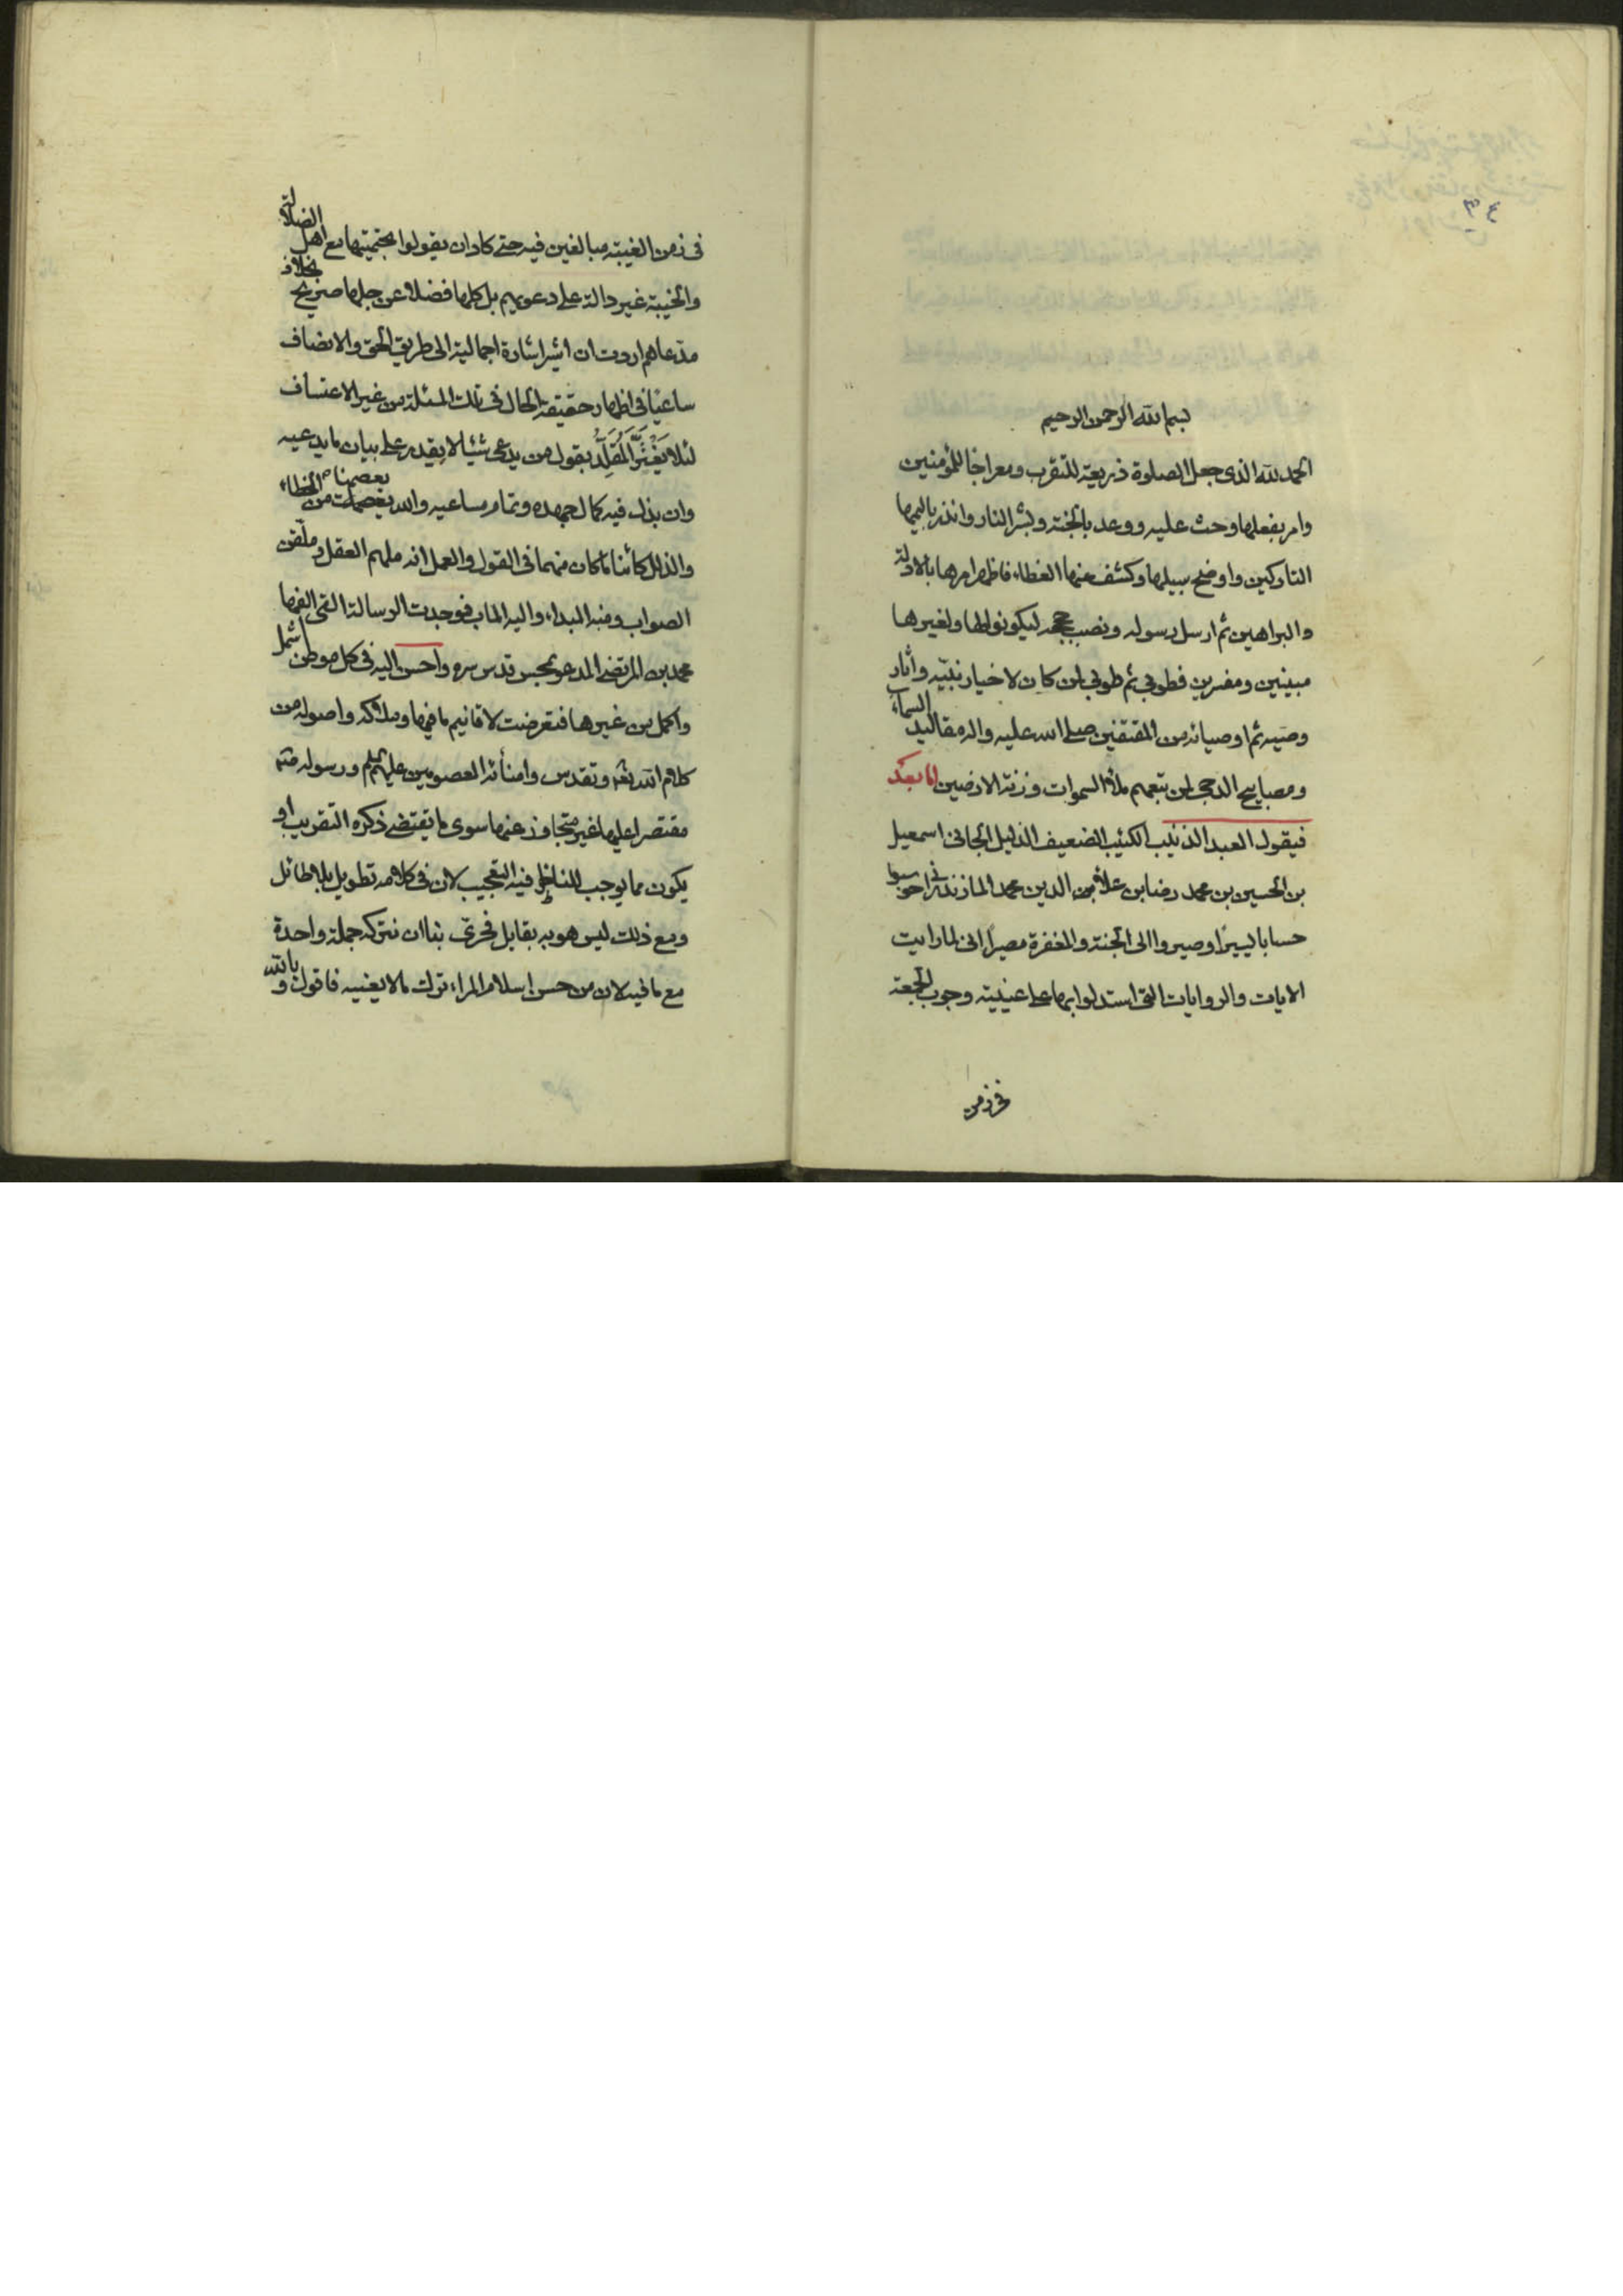 بسم الله الرحمن الرحيم
الحمد لله الذی جعل الصلوة ذريعة للتقرب ومعراجا للمؤمنين
وامر بفعلها وحث عليه ووعد بالجنة وبشر النار وانذر باليمها
التاركين واوضح سبيلها وكشف عنها الغطاء فاظهر امرها بالادلة
والبراهين ثم ارسل رسوله ونصب حججه ليكونوا لها ولغيرها
مبينين ومفسرين فطوبی ثم طوبی لمن كان لاخيار نبيه وآثار
وصيه ثم اوصيائه من المقتفين صلی الله عليه واله مقاليد السماء
ومصابيح الدجی لمن تبعهم ملأ السموات وزنة الارضين اما بعد
فيقول العبد المذنب الكئيب الضعيف الذليل الجانی اسمعيل
بن الحسين بن محمد رضا بن علاء الدين محمد المازندرانی حوسبوا
حسابا يسيرا وصيروا الی الجنة والمغفرة مصيرا انی لما رايت
الايات والروايات التی استدلوا بها علی عينية وجوب الجمعة
فی زمن
فی زمن الغيبة مبالغين فيه حتی كاد ان يقولوا بحتميتها مع اهل الضلالة
والخيبة غير دالة علی دعويهم بل كلها فضلا عن جلها صريح بخلاف
مدعاهم اردت ان اشير اشارة اجمالية الی طريق الحق والانصاف
ساعيا فی اظهار حقيقة الحال فی تلك المسئلة من غير الاعتساف
لئلا يغترَّ المُقلِّد بقول من يدعی شيئا لا يقدر علی بيان ما يدعيه
وان بذل فيه كمال جهده وتمام مساعيه والله يعصمنا من الخطاء
والزلل كائنا ما كان منهما فی القول والعمل انه ملهم العقل وملقن
الصواب ومنه المبداء واليه الماب فوجدت الرسالة التی الفها
محمد بن المرتضی المدعو بمحسن قدس سره واحسن اليه فی كل موطن اشمل
واكمل من غيرها فتعرضت لاقانيم ما فيها وملاكه واصوله من
كلام الله تعالی وتقدس وامنائه المعصومين عليهم السلم ورسوله
مقتصرا عليها غير متجاوز عنها سوی ما يقتضی ذكره التقريب او
يكون مما يوجب للناظر فيه التعجيب لان فی كلامه تطويل بلا طائل
ومع ذلك ليس هو به بقايل فحری بنا ان نتركه جملة واحدة
مع ما فيه لان من حسن اسلام المراء ترك ما لا يعنيه فاقول وبالله